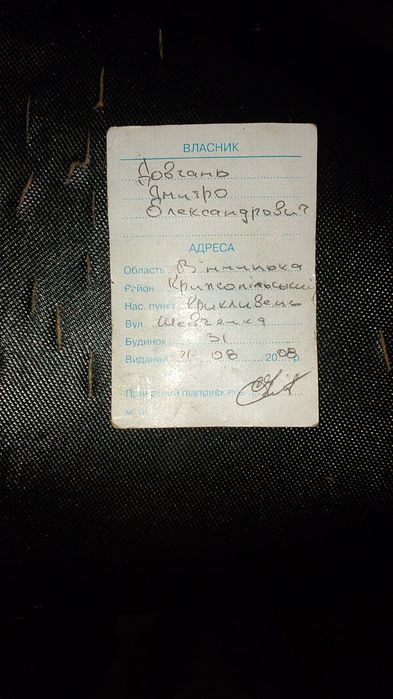 ВЛАСНИК
Довгань
Дмитро
Олександрович
АДРЕСА
Область Вінницька
Район Крижопільський
Нас. пункт Крикливець
Вул. Шевченка
Будинок 31
Виданий 21 08 2008р.
Приватний підприємець
М.П.